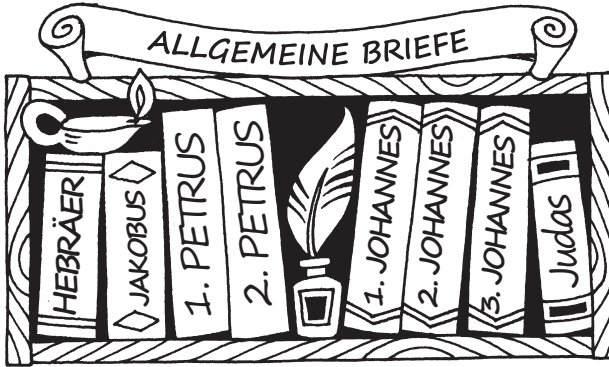 ALLGEMEINE BRIEFE
HEBRÄER
JAKOBUS
1. PETRUS
2. PETRUS
1. JOHANNES
2. JOHANNES
3. JOHANNES
Judas